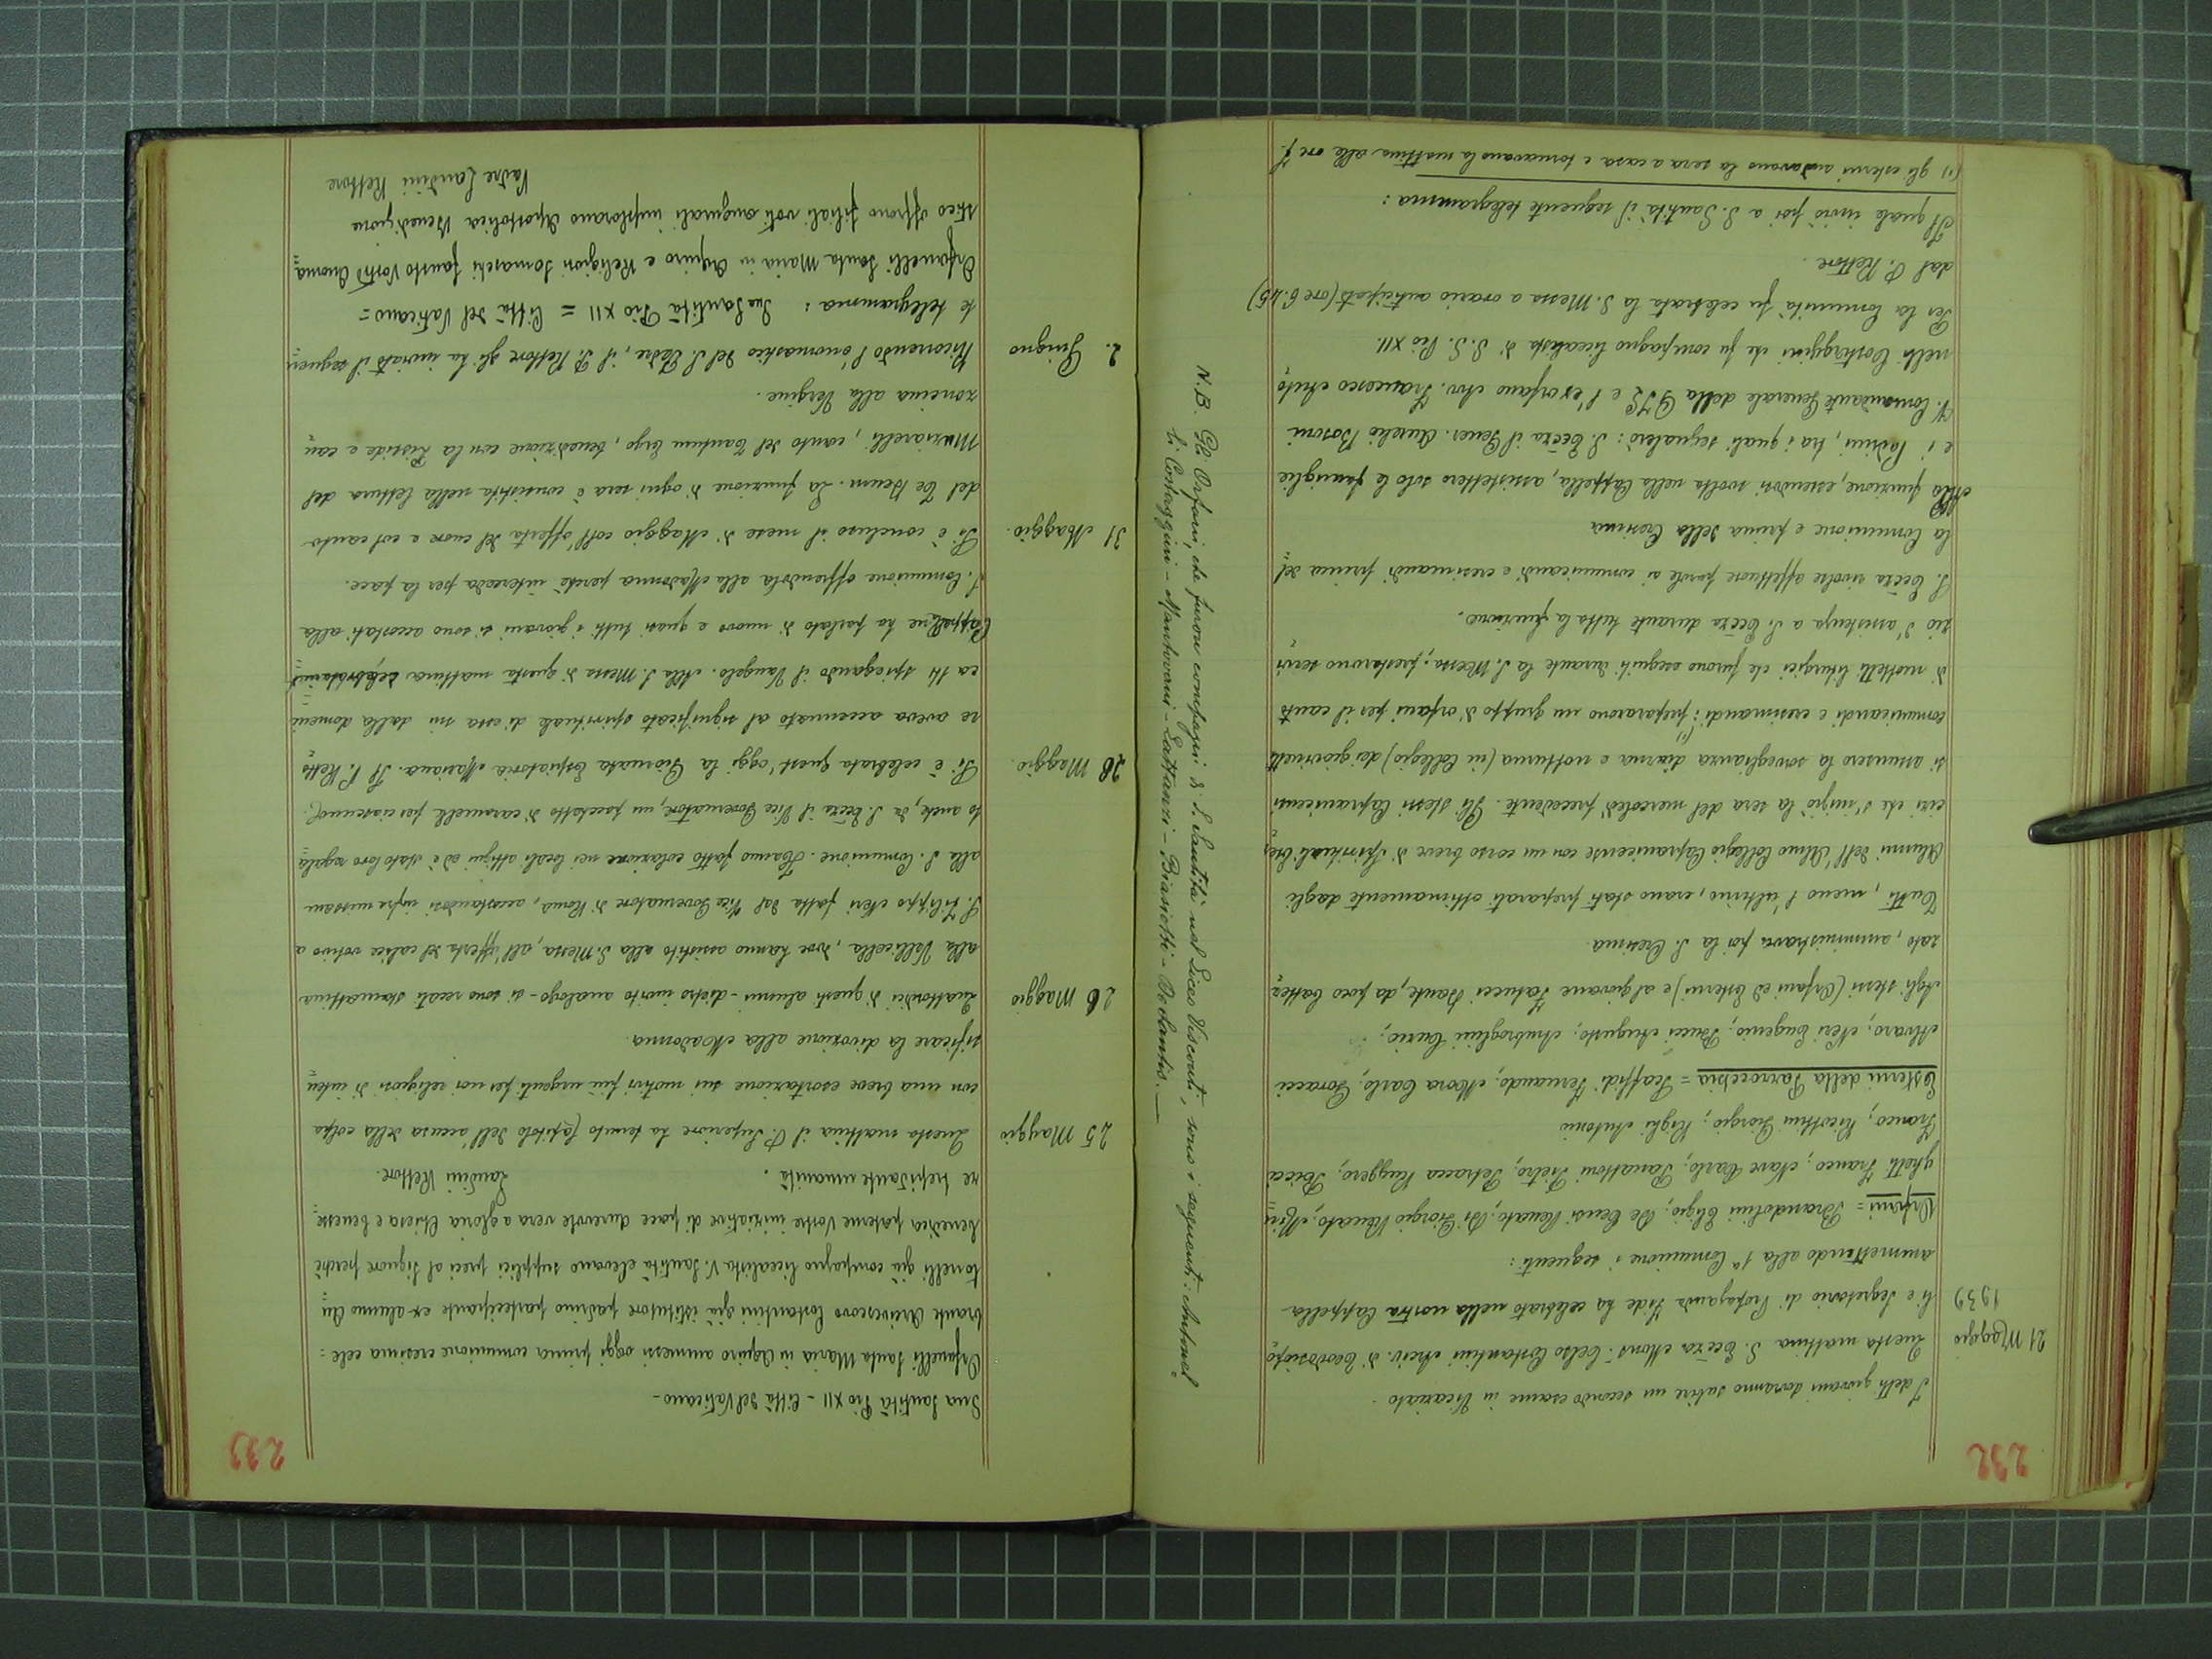 232
I detti giovani dovranno subire un secondo esame in Vicariato.
21 Maggio
1939
Questa mattina S. Ecc̃za Mons. Celso Costantini Arciv. di Teodosiopo
li e Segretario di Propaganda Fide ha celebrato nella nostra Cappella
ammettendo alla 1ª Comunione i seguenti:
Orfani = Brandolini Eligio, De Censi Renato, Di Giorgio Renato,
ghetti Franco, Nave Carlo, Panattoni Pietro, Petracca Ruggero, Ricci
Franco, Ricottini Giorgio, Righi Antonio
Esterni della Parrocchia = Scaffidi Fernando, Morra Carlo, Soracci
Alvaro, Neri Eugenio, Bucci Augusto, Ambroglini Curzio,
Agli stessi (Orfani ed Esterni) e al giovane Fatucci Dante, da poco battez
zato, amministrava poi la S. Cresima.
Tutti, meno l'ultimo, erano stati preparati ottimamente dagli
Alunni dell'Almo Collegio Capranicense con un corso breve di Spirituali Eser
cizi che s'iniziò la sera del mercoledì precedente. Gli stessi Capranicensi
si assunsero la sorveglianza diurna e notturna (in Collegio) dei giovinetti
comunicandi e cresimandi; (1) prepararono un gruppo d'orfani per il canto
di mottetti liturgici che furono eseguiti durante la S. Messa; prestarono servi
zio d'assistenza a S. Ecc̃za durante tutta la funzione.
S. Ecc̃za rivolse affettuose parole ai comunicandi e cresimandi prima del
la Comunione e prima della Cresima
Alla funzione, essendosi svolta nella Cappella, assistettero solo le famiglie
e i Padrini, tra i quali segnalerò: S. Ecc̃za il Gener. Aurelio Bosoni
V. Comandante Generale della GIL e l'ex orfano Avv. Francesco Anto
nelli Costaggini che fu compagno licealista di S. S. Pio XII.
Per la Comunità fu celebrata la S. Messa a orario anticipato (ore 6.45)
dal P. Rettore.
Il quale inviò poi a S. Santità il seguente telegramma:
(1) gli esterni andavano la sera a casa e tornavano la mattina alle ore 7.
N.B. Gli Orfani, che furon compagni di S. Santità nel Liceo Visconti, sono i seguenti: Antonel
li Costaggini - Mantovani - Lattanzi - Biasiotti - De Santis. —
233
Sua Santità Pio XII - Città del Vaticano -
Orfanelli Santa Maria in Aquiro ammessi oggi prima comunione cresima cele
brante Arcivescovo Costantini già istitutore padrino partecipante ex-alunno An
tonelli già compagno licealista V. Santità elevano supplici preci al Signore perchè
benedica paterne Vostre iniziative di pace durevole vera a gloria Chiesa e benesse
re trepidante umanità. Landini Rettore.
25 Maggio
Questa mattina il P. Superiore ha tenuto Capitolo dell'accusa della colpa
con una breve esortazione sui motivi più urgenti per noi religiosi di inten
sificare la divozione alla Madonna.
26 Maggio
Quattordici di questi alunni - dietro invito analogo - si sono recati stamattina
alla Vallicella, dove hanno assistito alla S. Messa, all'offerta del calice votivo a
S. Filippo Neri fatta dal Vice Governatore di Roma, accostandosi
alla S. Comunione. Hanno fatto colazione nei locali attigui ed è stato loro regala
to anche, da S. Ecc̃za il Vice Governatore, un pacchetto di caramelle per ciascuno.
28 Maggio.
Si è celebrata quest'oggi la Giornata Espiatoria Mariana. Il P. Retto
re aveva accennato al significato spirituale di essa sin dalla domeni
ca 14 spiegando il Vangelo. Alla S. Messa di questa mattina
Cappelline ha parlato di nuovo e quasi tutti i giovani si sono accostati alla
S. Comunione offrendola alla Madonna perchè interceda per la pace.
31 Maggio.
Si è concluso il mese di Maggio coll'offerta del cuore e col canto
del Te Deum. La funzione di ogni sera è consistita nella lettura del
Muzzarelli, canto del Tantum Ergo, benedizione con la Pisside e can
zoncina alla Vergine.
2. Giugno
Ricorrendo l'onomastico del S. Padre, il P. Rettore gli ha inviato il seguen
te telegramma: Sua Santità Pio XII = Città del Vaticano =
Orfanelli Santa Maria in Aquiro e Religiosi Somaschi fausto Vostro Onoma
stico offrono filiali voti augurali implorano Apostolica Benedizione
Padre Landini Rettore